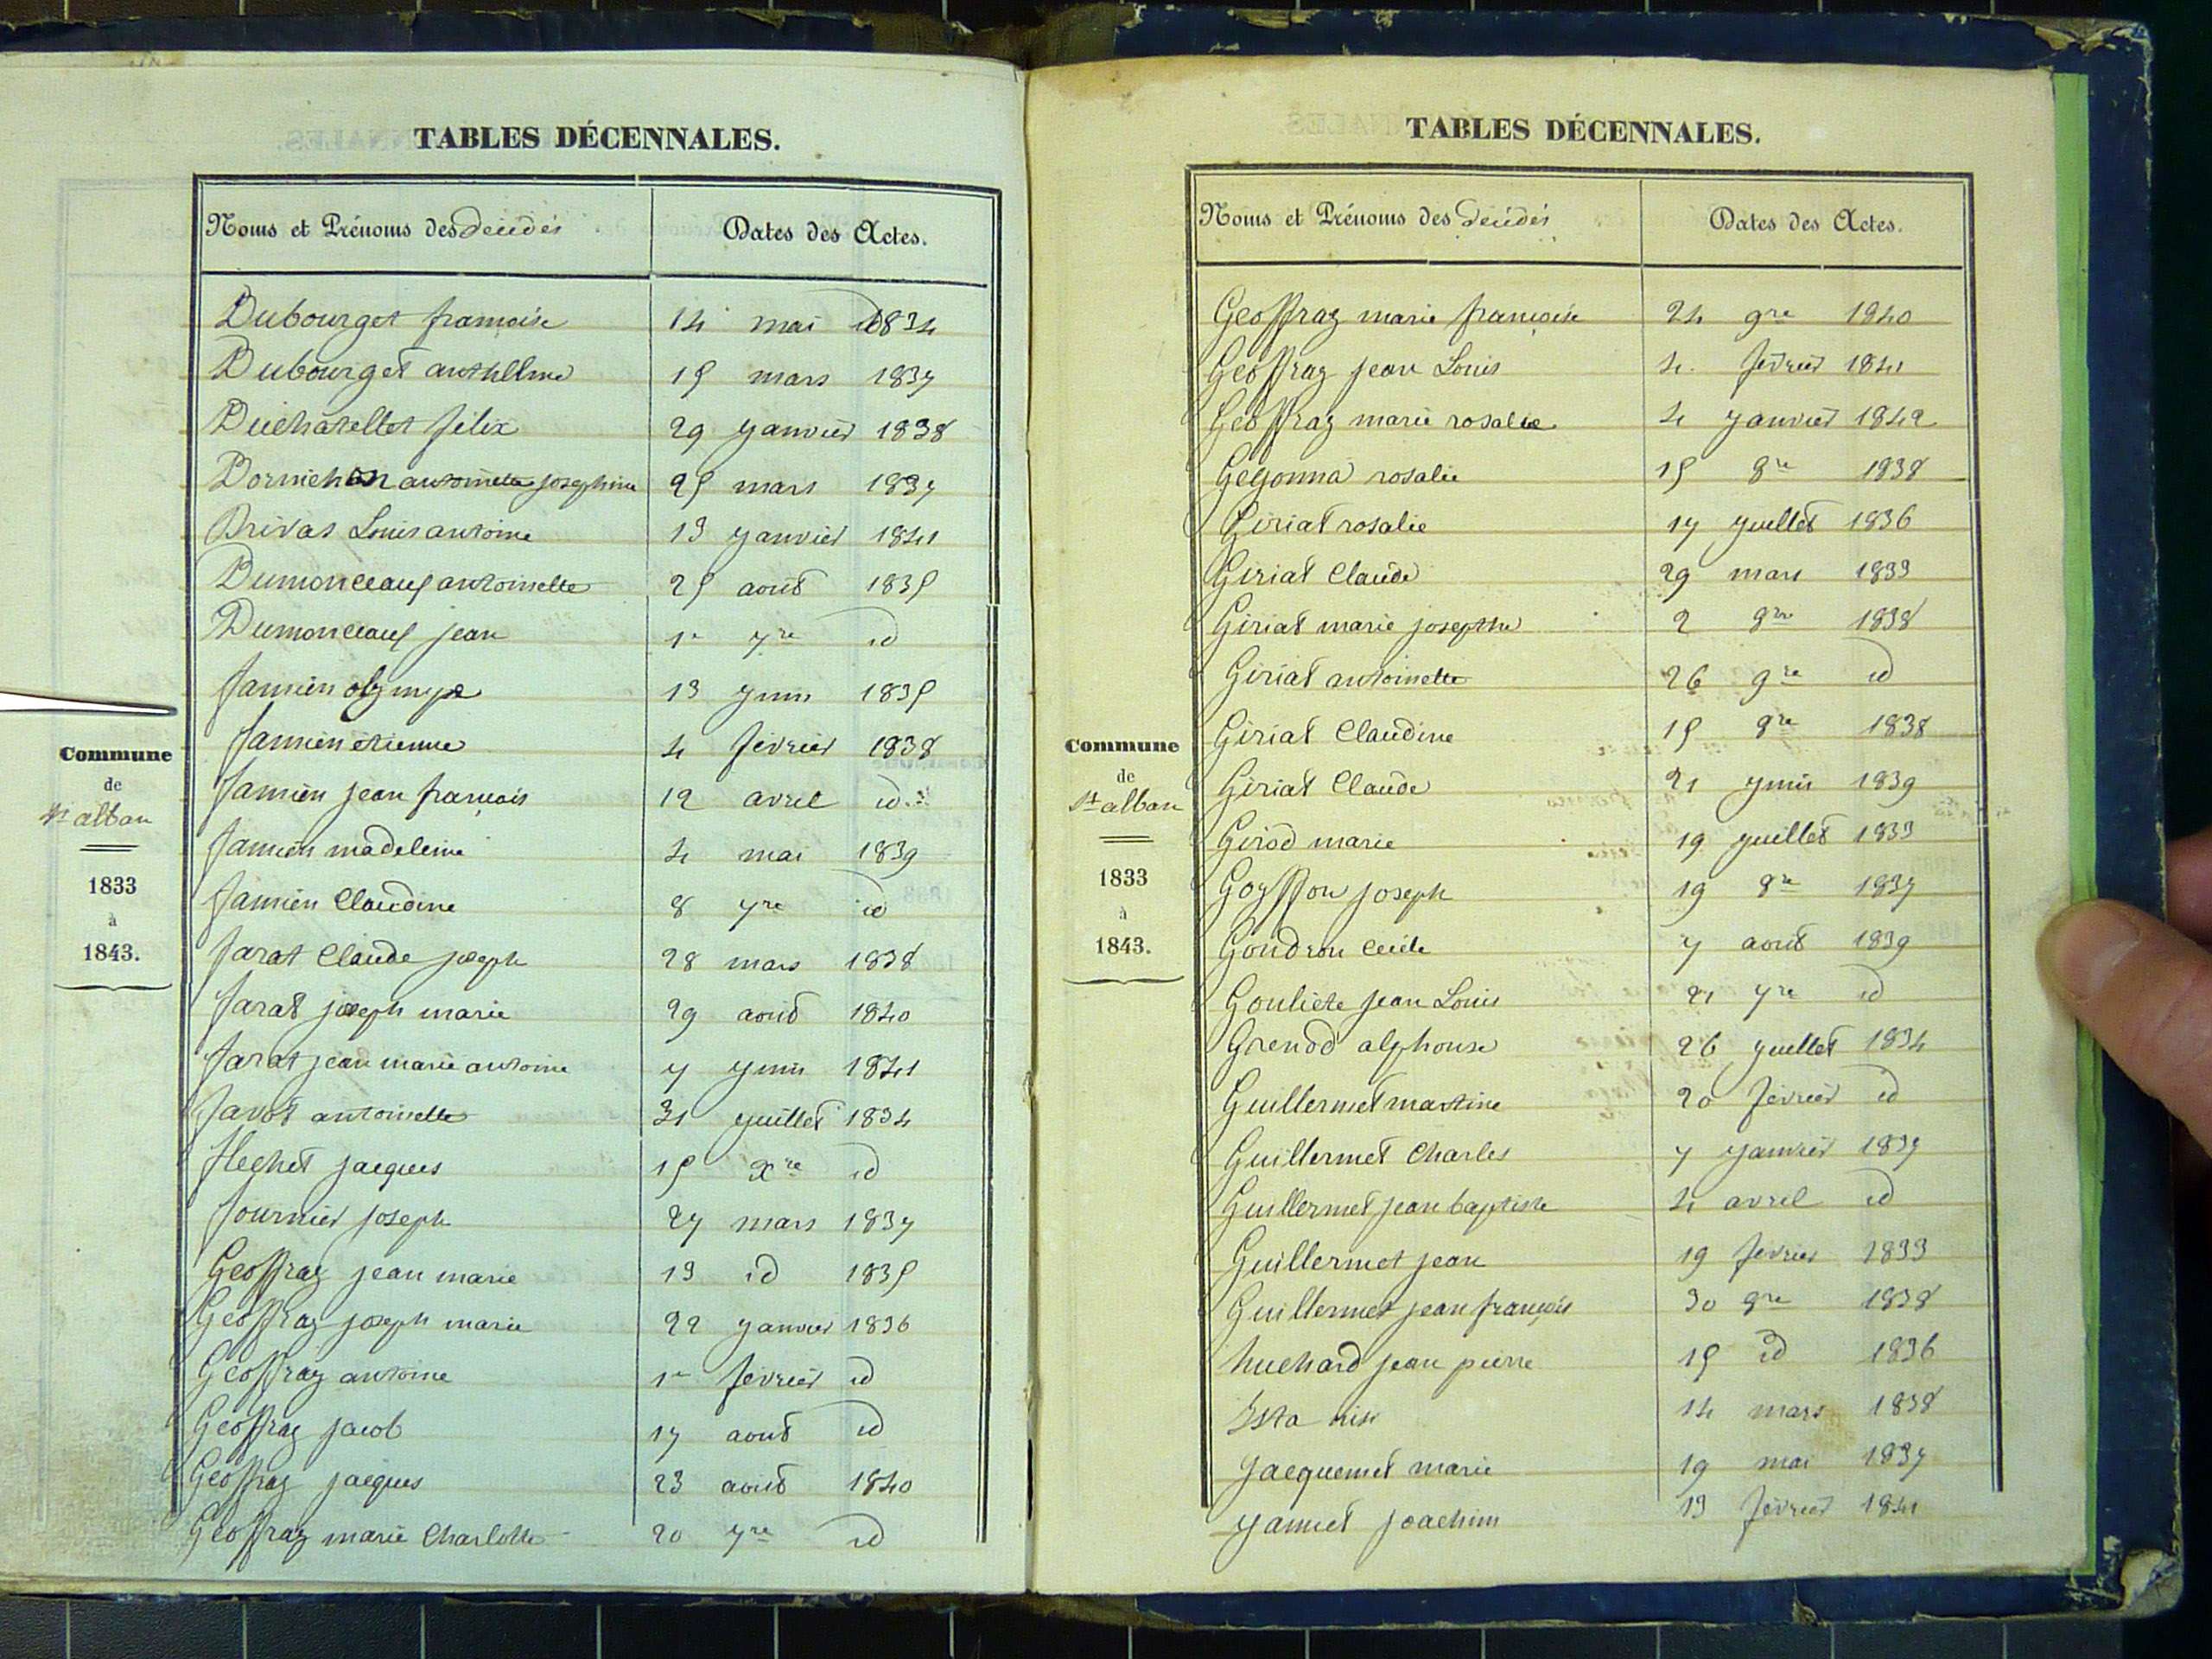 TABLES DÉCENNALES.
Noms et Prénoms des décédés
Dates des Actes.
Dubourget francoise 14 mai 1834
Dubourget anthelme 15 mars 1837
Duchatellet félix 29 janvier 1838
Dornichon antoinette josephine 25 mars 1837
Drivas Louis antoine 13 janvier 1841
Dumonceaux antoinette 25 août 1835
Dumonceaux jean 1er 7re id
famien olympe 13 juin 1835
famien etienne 4 février 1838
famien jean françois 12 avril id
famien madeleine 4 mai 1839
famien Claudine 8 7re id
farat Claude joseph 28 mars 1838
farat joseph marie 29 août 1840
farat jean marie antoine 7 juin 1841
favot antoinette 31 juillet 1834
flechet jacques 15 Xre id
fournier joseph 27 mars 1837
Geoffray jean marie 13 id 1835
Geoffray joseph marie 22 janvier 1836
Geoffray antoine 1er février id
Geoffray jacob 17 août id
Geoffray jacques 23 août 1840
Geoffray marie Charlotte 20 7re id
Commune
de
St alban
1833
à
1843.
TABLES DÉCENNALES.
Noms et Prénoms des décédés
Dates des Actes.
Geoffray marie françoise 24 9re 1840
Geoffray jean Louis 4 février 1841
Geoffray marie rosalie 4 janvier 1842
Gegonna rosalie 15 8re 1838
Giriat rosalie 17 juillet 1836
Giriat Claude 29 mars 1833
Giriat marie josephte 2 9re 1838
Giriat antoinette 26 9re id
Giriat Claudine 15 9re 1838
Giriat Claude 21 juin 1839
Girod marie 19 juillet 1833
Goyffon joseph 19 8re 1837
Goudron cécile 7 août 1839
Gouliete jean Louis 21 7re id
Grenod alphonse 26 juillet 1834
Guillermet martine 20 février id
Guillermet Charles 7 janvier 1837
Guillermet jean baptiste 4 avril id
Guillermet jean 19 février 1833
Guillermet jean françois 30 9re 1838
huchard jean pierre 15 id 1836
14 mars 1838
jacquemet marie 19 mai 1837
jannet joachim 13 février 1841
Commune
de
St alban
1833
à
1843.